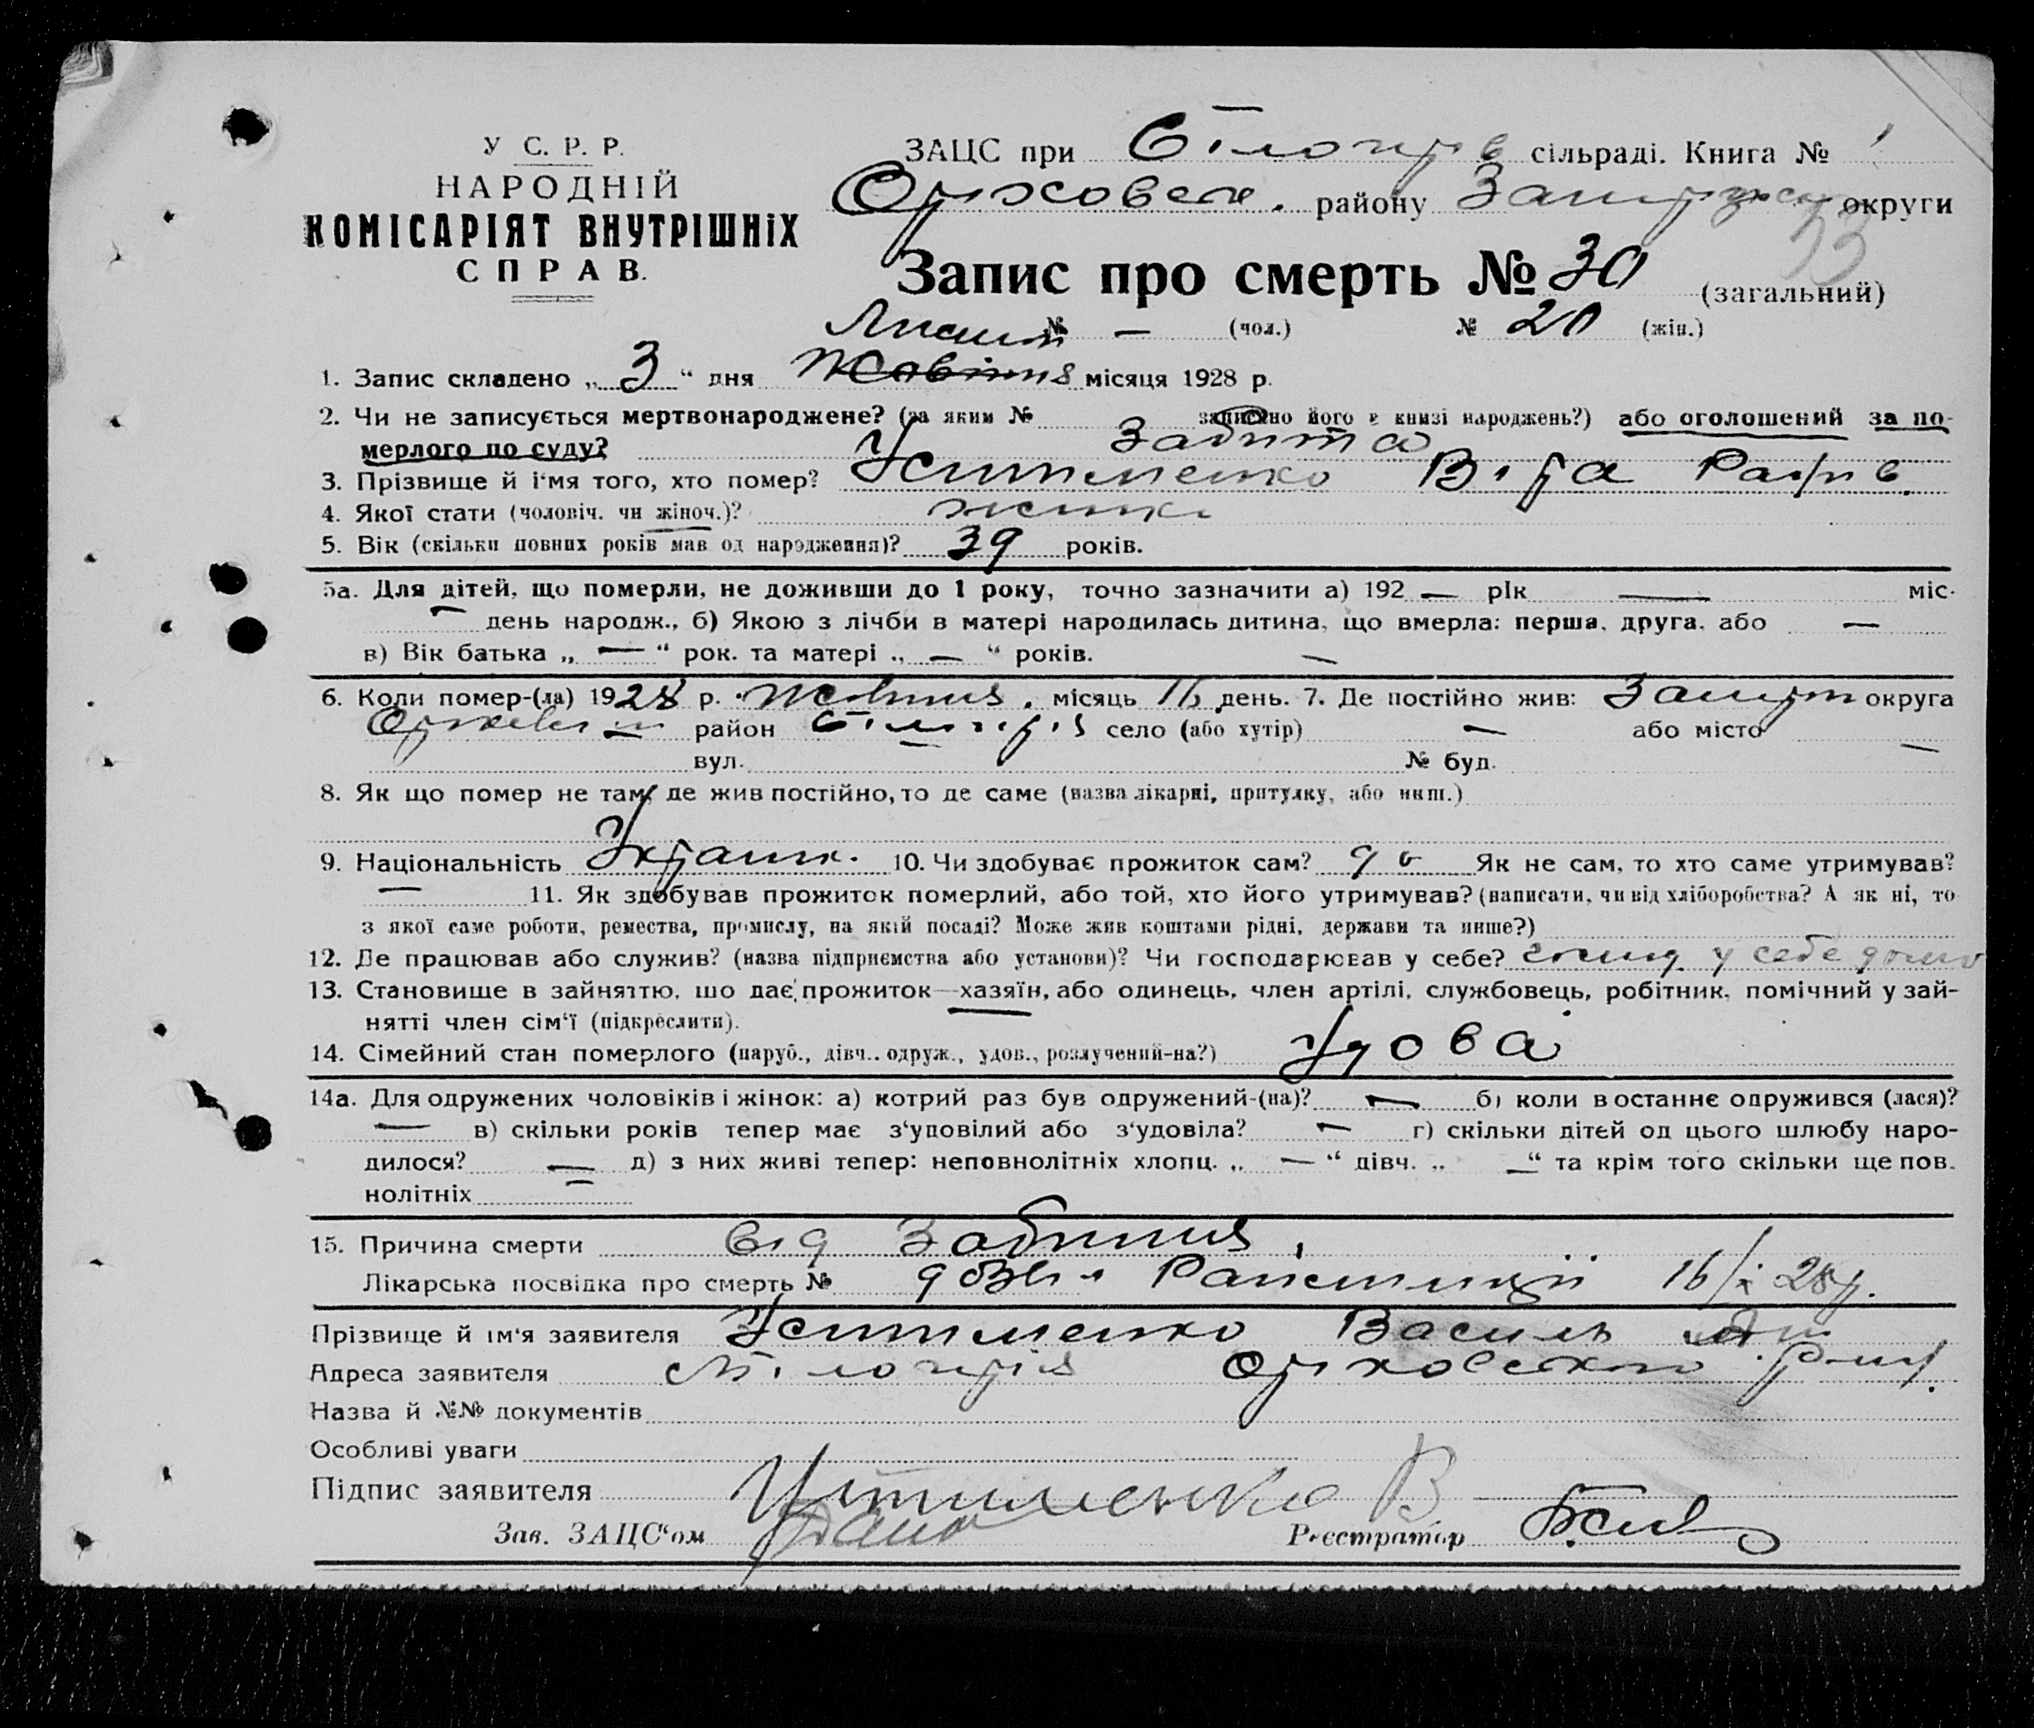 У С. Р. Р.
НАРОДНІЙ
КОМІСАРІЯТ ВНУТРІШНІХ
СПРАВ.
ЗАЦС при Білогір в сільраді. Книга № 1
Оріховськ. району Запоріж округи
53
Запис про смерть № 30 (загальний)
№ — (чол.) № 20 (жін.)
Листоп
1. Запис складено „ 3 “ дня Жовтня місяця 1928 р.
2. Чи не записується мертвонароджене? (за яким № записано його в книзі народжень?) або оголошений за по-
мерлого по суду? Забита
3. Прізвище й і‘мя того, хто помер? Устименко Віра
4. Якої стати (чоловіч. чи жіноч.)? жінка
5. Вік (скільки повних років мав од народження)? 39 років.
5а. Для дітей, що померли, не доживши до 1 року, точно зазначити а) 192 — рік — міс.
— день народж., б) Якою з лічби в матері народилась дитина, що вмерла: перша, друга, або —
в) Вік батька „ — “ рок. та матері „ — “ років. —
6. Коли помер-(ла) 1928 р. Жовтня. місяць 16 день. 7. Де постійно жив: Запоріж округа
Оріхівськ район Білогіря село (або хутір) — або місто —
вул. — № буд.
8. Як що помер не там, де жив постійно, то де саме (назва лікарні, притулку, або инш.)
9. Національність Україн. 10. Чи здобуває прожиток сам? да Як не сам, то хто саме утримував?
— 11. Як здобував прожиток померлий, або той, хто його утримував? (написати, чи від хліборобства? А як ні, то
з якої саме роботи, ремества, промислу, на якій посаді? Може жив коштами рідні, держави та инше?)
12. Де працював або служив? (назва підприємства або установи)? Чи господарював у себе? господ у себе дома
13. Становище в зайняттю, що дає прожиток—хазяїн, або одинець, член артілі, службовець, робітник, помічний у зай-
нятті член сім‘ї (підкреслити).
14. Сімейний стан померлого (паруб., дівч.. одруж., удов., розлучений-на?) Удова
14а. Для одружених чоловіків і жінок: а) котрий раз був одружений-(на)? — б) коли востаннє одружився (лася)?
— в) скільки років тепер має з‘удовілий або з‘удовіла? — г) скільки дітей од цього шлюбу наро-
дилося? — д) з них живі тепер: неповнолітніх хлопц. „ — “ дівч. „ — “ та крім того скільки ще пов-
нолітніх —
15. Причина смерти від забиття
Лікарська посвідка про смерть № дозвіл Райміліції 16/X 28р.
Прізвище й ім‘я заявителя Устименко Василь
Адреса заявителя Білогіря Оріховського
Назва й №№ документів
Особливі уваги
Підпис заявителя Устименко В
Зав. ЗАЦС‘ом Реєстратор